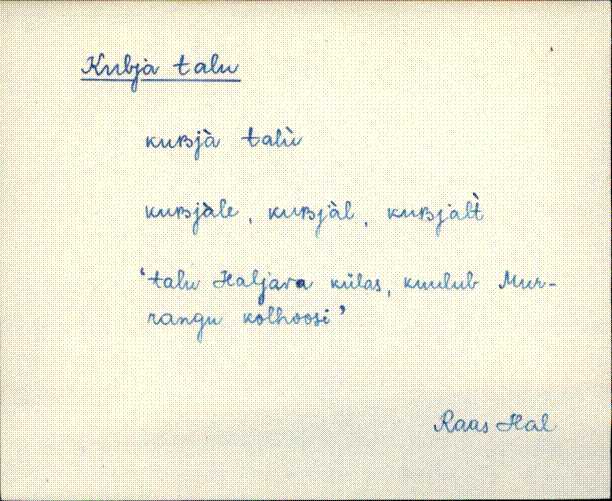 Kubja talu
kuʙjà talù
kuʙjàle, kuʙjàl, kuʙjalt̀
‘talu Haljava külas, kuulub Mur-
rangu kolhoosi’
Raas Hal